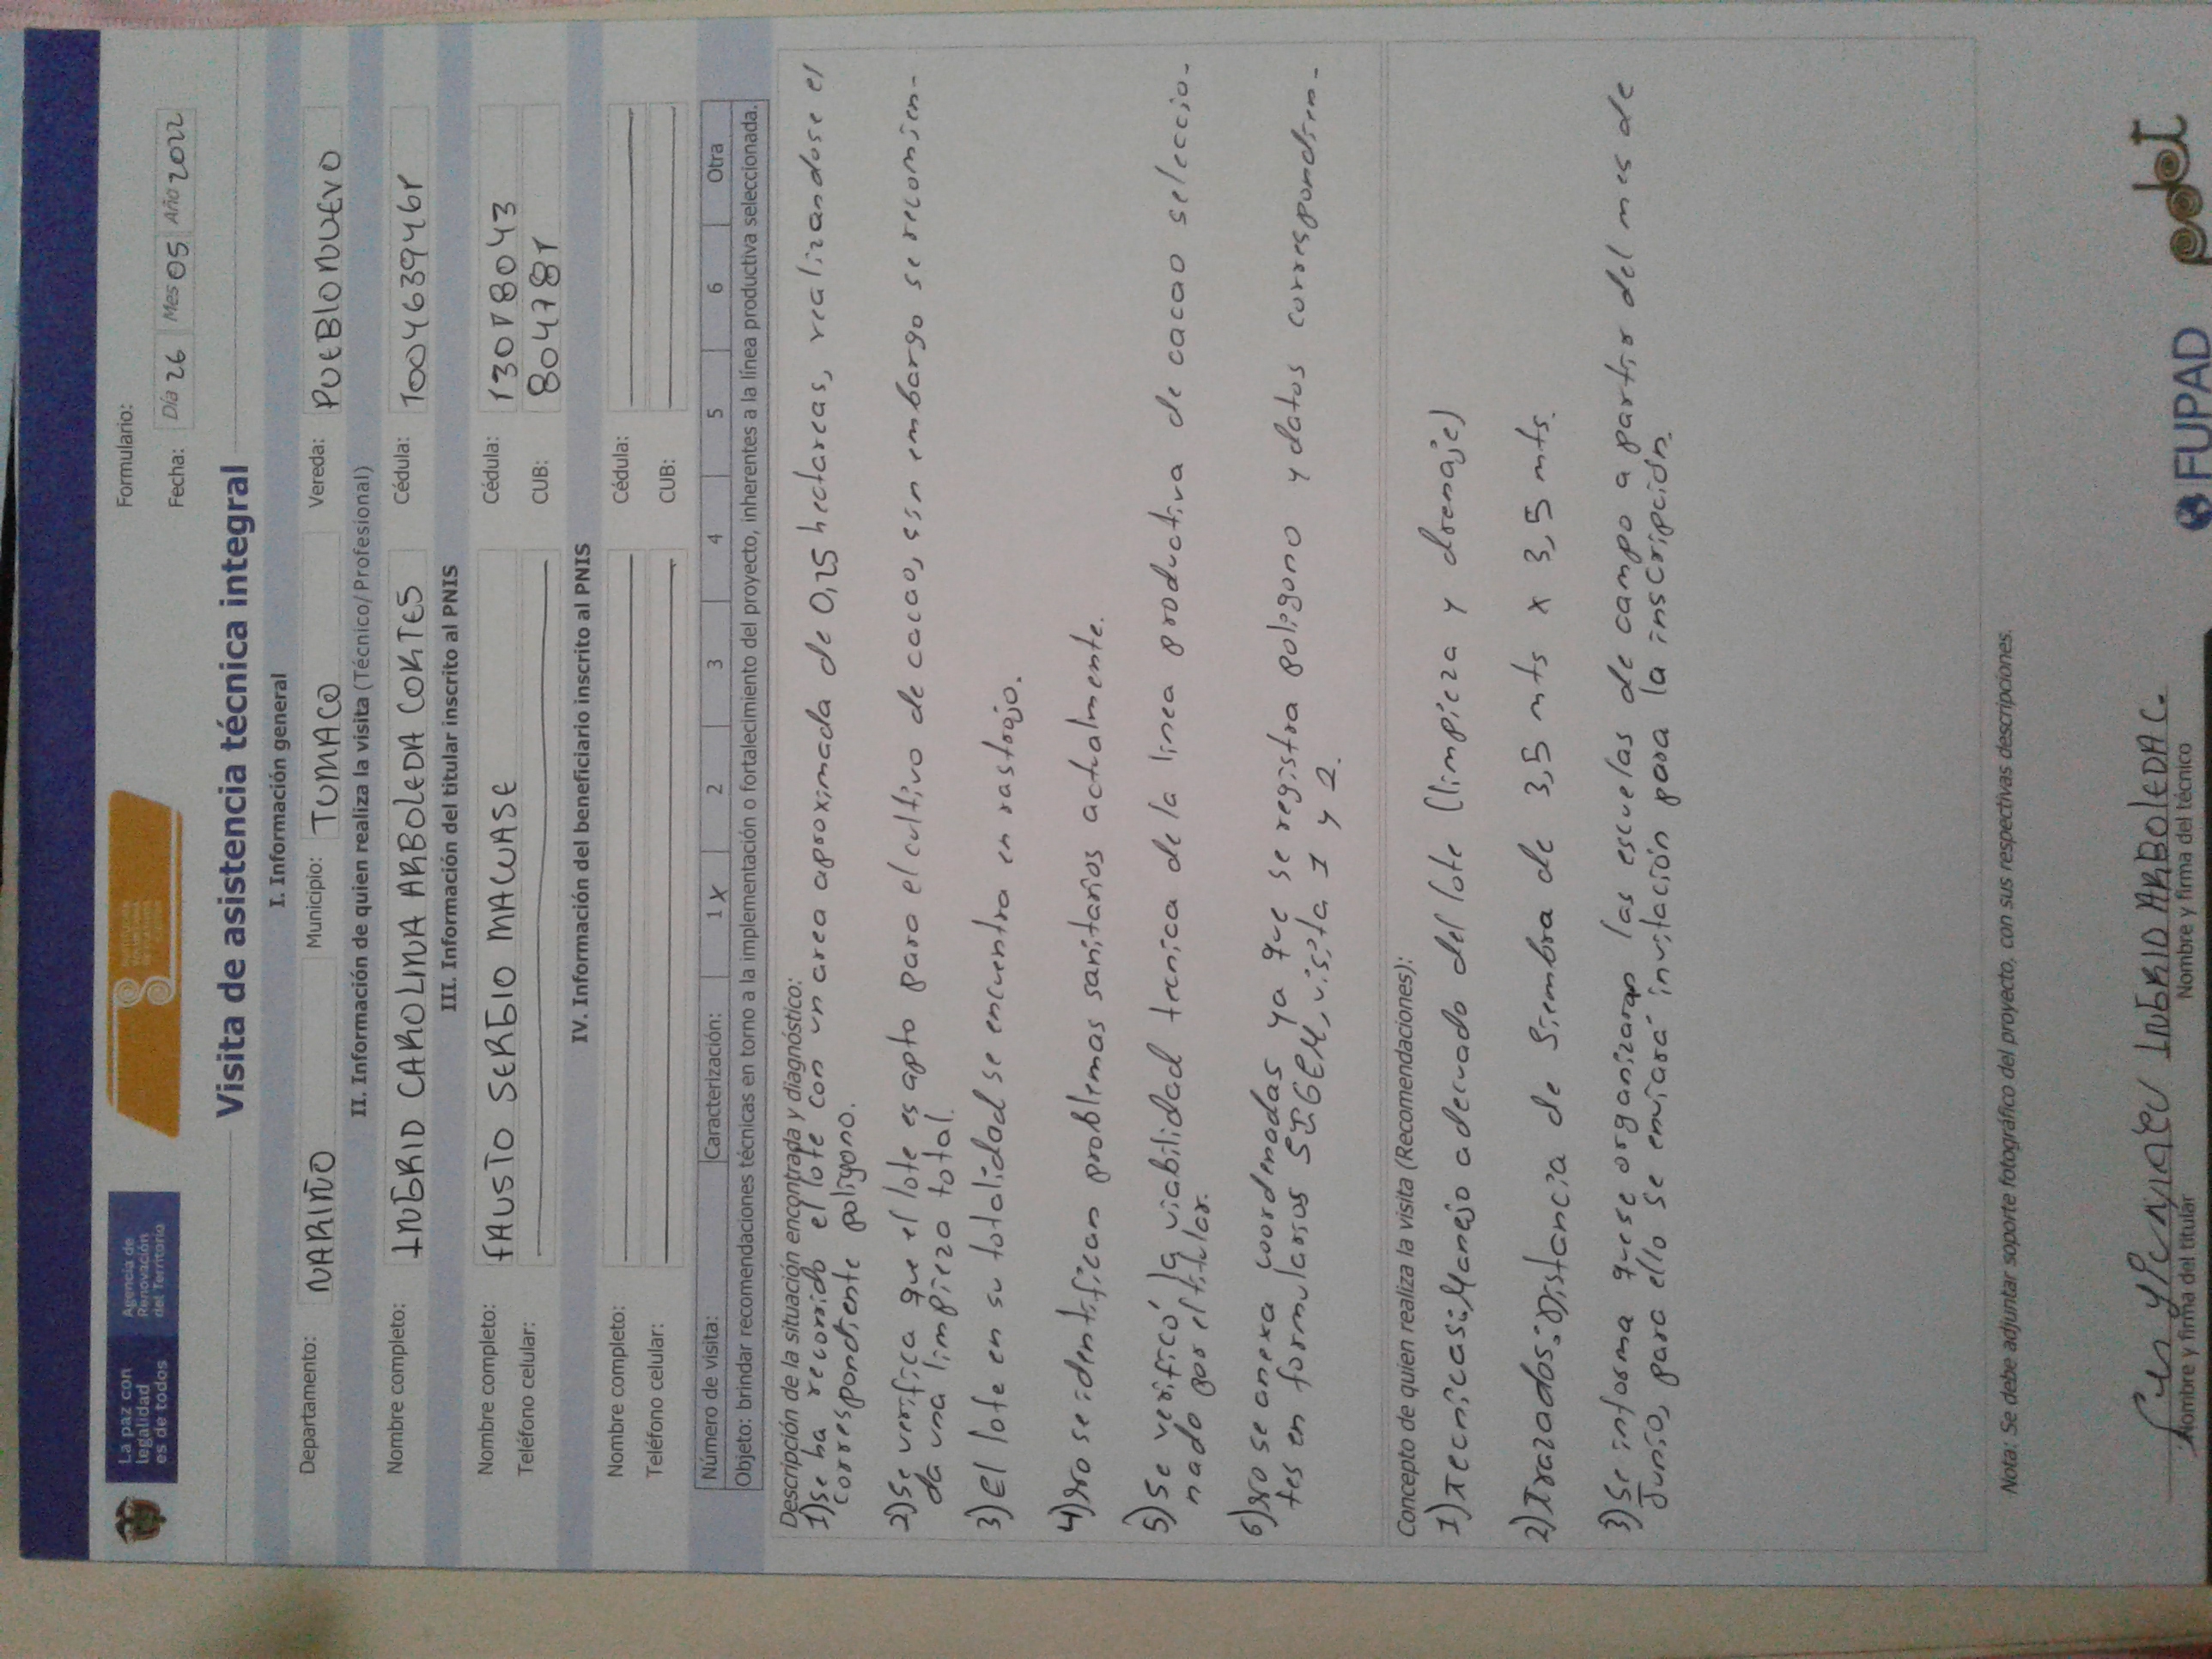 La paz con
legalidad
es de todos
Agencia de
Renovación
del Territorio
Formulario:
Fecha: Día 26 Mes 05 Año 2022
Visita de asistencia técnica integral
I. Información general
Departamento: NARIÑO Municipio: TUMACO Vereda: PUEBLO NUEVO
II. Información de quien realiza la visita (Técnico/ Profesional)
Nombre completo: INGRID CAROLINA ARBOLEDA CORTES Cédula: 1004639461
III. Información del titular inscrito al PNIS
Nombre completo: FAUSTO SERGIO Cédula: 13018043
Teléfono celular: CUB: 804781
IV. Información del beneficiario inscrito al PNIS
Nombre completo: Cédula:
Teléfono celular: CUB:
Número de visita: Caracterización: 1 X 2 3 4 5 6 Otra
Objeto: brindar recomendaciones técnicas en torno a la implementación o fortalecimiento del proyecto, inherentes a la línea productiva seleccionada.
Descripción de la situación encontrada y diagnóstico:
1) Se ha recorrido el lote con un area aproximada de 0,25 hectareas, realizandose el
correspondiente poligono.
2) Se verifica que el lote es apto para el cultivo de cacao, sin embargo se recomien-
da una limpieza total.
3) El lote en su totalidad se encuentra en rastrojo.
4) No se identifican problemas sanitarios actualmente.
5) Se verificó la viabilidad tecnica de la linea productiva de cacao seleccio-
nado por el titular.
6) No se anexa coordenadas ya que se registra poligono y datos correspondien-
tes en formularios SIGEM, visita 1 y 2.
Concepto de quien realiza la visita (Recomendaciones):
1) Tecnicas: Manejo adecuado del lote (limpieza y drenaje)
2) Trazados: Distancia de Siembra de 3,5 mts x 3,5 mts.
3) Se informa que se organizaran las escuelas de campo a partir del mes de
Junio, para ello se enviará invitación para la inscripción.
Nota: Se debe adjuntar soporte fotográfico del proyecto, con sus respectivas descripciones.
INGRID ARBOLEDA C.
Nombre y firma del titular Nombre y firma del técnico
FUPAD pdet